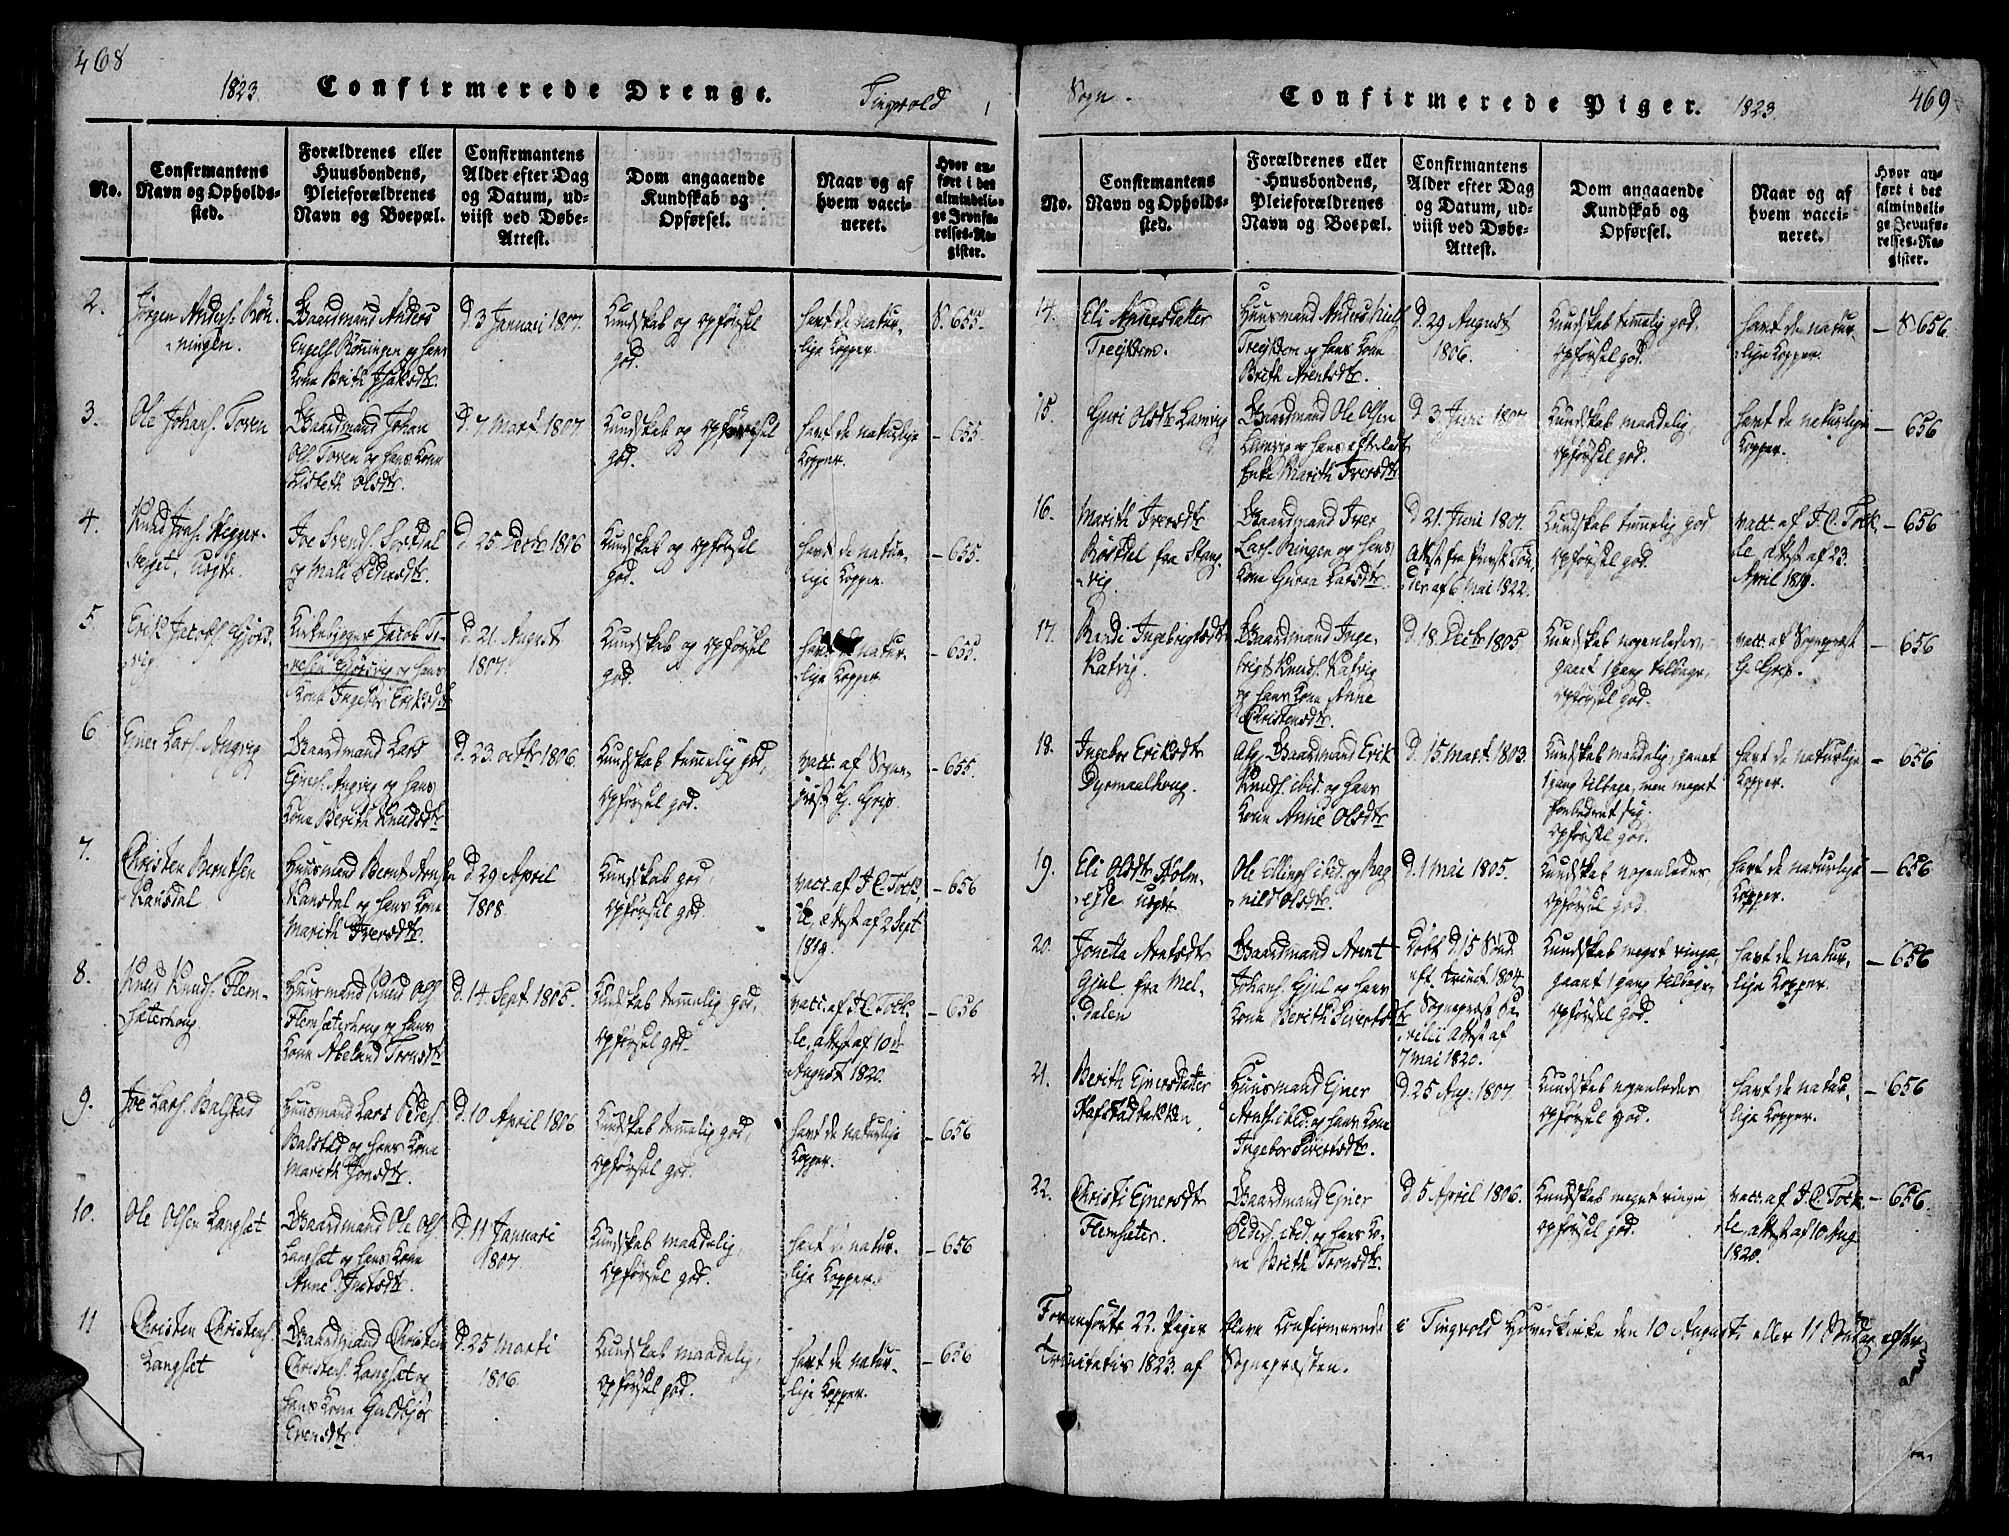 468
1823. Confirmerede Drenge. Tingvold
No.
Confirmantens
Navn og Opholds-
sted.
Forældrenes eller
Huusbondens,
Pleieforældrenes
Navn og Boepæl.
Confirmantens
Alder efter Dag
og Datum, ud-
viist ved Døbe-
Attest.
Dom angaaende
Kundskab og
Opførsel.
Naar og af
hvem vacci-
neret.
Hvor an-
ført i det
almindeli-
ge Jevnfø-
relses-Re-
gister.
2.
Jørgen Anders. Røn-
ningen.
Gaardmand Anders
Engels. Rønningen og hans
Kone Brith
d. 3 Januari 1807.
Kundskab og opførsel
god.
havt de natur-
lige Kopper.
S. 655.
3.
Ole Johans. Toven
Gaardmand Johan
Ols. Toven og hans Kone
Lisbeth Olsdtr.
d. 7 Mart. 1807
Kundskab og opførsel
god.
havt de naturlige
Kopper.
- 655.
4.
Knud Ivers.
Joe Svends.
og Mali Pedersdtr.
d. 25 Decbr 1806
Kundskab og opførsel
god.
havt de natur-
lige Kopper.
- 655.
5.
Erik Jacobs. Gjørs-
vig
Kirkesynger Jacob
Gjørsvig og hans
Kone Ingebor Eriksdtr
d. 21. August
1807.
Kundskab og opførsel
god.
havt de natur-
lige Kopper
- 655.
6
Ejner Lars. Angvig
Gaardmand Lars
Ejners. Angvig og hans
Kone Berith Knudsdtr
d. 23. octbr 1806
Kundskab temmelig god,
opførsel god.
vacc. af Sogne-
præst G. Grip.
- 655.
7.
Christen Berntsen
Ransdal
Huusmand Bernt
Ransdal og hans Kone
Marith Iversdtr.
d. 29 April
1808.
Kundskab god,
opførsel god.
vacc. af J. C. Tock-
le, attest af 2 Sept
1819.
- 656
8.
Knud Knuds. Flem-
sæterhoug
Huusmand Knud Ols.
Flemsæterhoug og hans
Kone
d. 14. Sept. 1805.
Kundskab temmelig god,
opførsel god.
vacc. af J. C. Tock-
le, attest af 10de
August 1820.
- 656
9.
Joe Lars. Balstad
Huusmand Lars Peders.
Balstad og hans Kone
Marith Jonsdtr.
d. 10 April 1806
Kundskab temmelig god,
opførsel god.
havt de naturlige
Kopper.
- 656
10.
Ole Olsen Langset
Gaardmand Ole Ols.
Langset og hans Kone
Anne
d. 11 Januari
1807
Kundskab maadelig,
opførsel god.
havt de natur-
lige Kopper.
- 656
11
Christen Christens.
Langset
Gaardmand Christen
Christens. Langset og
hans Kone Guldbjør
Evensdtr
d. 25 Marti
1806.
Kundskab maadelig,
opførsel god.
havt de natur-
lige Kopper.
- 656
Sogn. Confirmerede Piger. 1823.
469
No.
Confirmantens
Navn og Opholds-
sted.
Forældrenes eller
Huusbondens,
Pleieforældrenes
Navn og Boepæl.
Confirmantens
Alder efter Dag
og Datum, ud-
viist ved Døbe-
Attest.
Dom angaaende
Kundskab og
Opførsel.
Naar og af
hvem vacci-
neret.
Hvor an-
ført i det
almindeli-
ge Jevnfø-
relses-Re-
gister.
14.
Eli Andersdatter
Huusmand Anders
og hans Kone
Brith Arentsdtr.
d. 29 August
1806.
Kundskab temmelig god,
opførsel god.
havt de natur-
lige Kopper.
- S 656.
15
Guri Olsdtr Lamvig
Gaardmand Ole Olsen
Lamvig og hans efterladte
Enke Marith Iversdtr
d. 3 Juni 1807
Kundskab maadelig,
opførsel god.
havt de naturlige
Kopper.
- 656
16.
Marith Iversdtr
Røsdal fra Stang-
vig
Gaardmand Iver
Lars. Ringen og hans
Kone Guroe Larsdtr
d. 21. Juni 1807.
Attest fra Provst Tøn-
der af 6 Mai 1822.
Kundskab temmelig god
opførsel god.
vacc. af J. C. Tock-
le, attest af 23.
April 1819.
- 656
17.
Randi Ingebrigtsdtr
Katvig.
Gaardmand Inge-
brigt Knuds. Katvig
og hans Kone Anne
Christensdtr.
d. 18. Decbr 1805
Kundskab nogenledes,
gaaet 1 gang tilbage,
opførsel god.
vacc. af Sognepræst
G. Grip.
- 656
18.
Ingebor Eriksdtr
Dyrnaalhoug.
Gaardmand Erik
Knuds. ibid. og hans
Kone Anne Olsdtr
d. 15. Mart. 1803.
Kundskab maadelig, gaaet
1 gang tilbage, men meget
forbedret sig.
opførsel god.
havt de naturlige
Kopper.
- 656
19.
Eli Olsdtr Holm-
eide uægte
Ole Ellings. ibid. og Rag-
nild Olsdtr.
d. 1 Mai 1805.
Kundskab nogenledes
opførsel god
havt de naturlige
Kopper.
- 656
20.
Joneta Arntsdtr
Gjul fra Mel-
dalen
Gaardmand Arent
Johans. Gjul og hans
Kone Berith Sivertsdtr
Døbt d. 15 Sønd
eft. Trinit. 1804.
Sognepræst
attest af
7 Mai 1820.
Kundskab meget ringe,
gaaet 1 gang tilbage,
opførsel god.
havt de natur-
lige Kopper.
- 656
21.
Berith Ejnersdatter
Hafstadbakken
Huusmand Ejner
Arnts. ibid. og hans Kone
Ingebor Sivertsdtr.
d. 25 Aug: 1807.
Kundskab nogenledes
opførsel god.
havt de natur-
lige Kopper.
- 656
22.
Christi Ejnersdtr
Flemsæter.
Gaardmand Ejner
Peders. ibid. og hans Ko-
ne Brith
d. 5 April 1806.
Kundskab meget ringe
opførsel god.
vacc. af J. C. Tock-
le, attest af 10 Aug
1820.
- 656.
Foranførte 22. Piger bleve confirmerede i Tingvold Hovedkirke den 10 August eller 11 Søndag efter
Trinitatis 1823 af Sognepræsten.